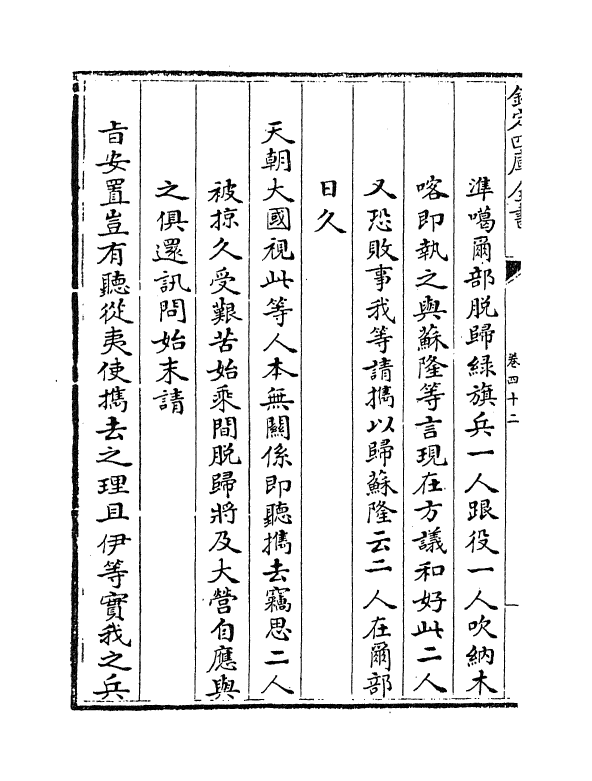 欽定四庫全書
卷四十二
準噶爾部脫歸綠旗兵一人跟役一人吹納木
喀即執之與蘇隆等言現在方議和好此二人
又恐敗事我等請擕以歸蘇隆云二人在爾部
日久
天朝大國視此等人本無關係即聽擕去竊思二人
被掠久受艱苦始乘間脫歸將及大營自應與
之俱還訊問始末請
旨安置豈有聽從夷使擕去之理且伊等實我之兵